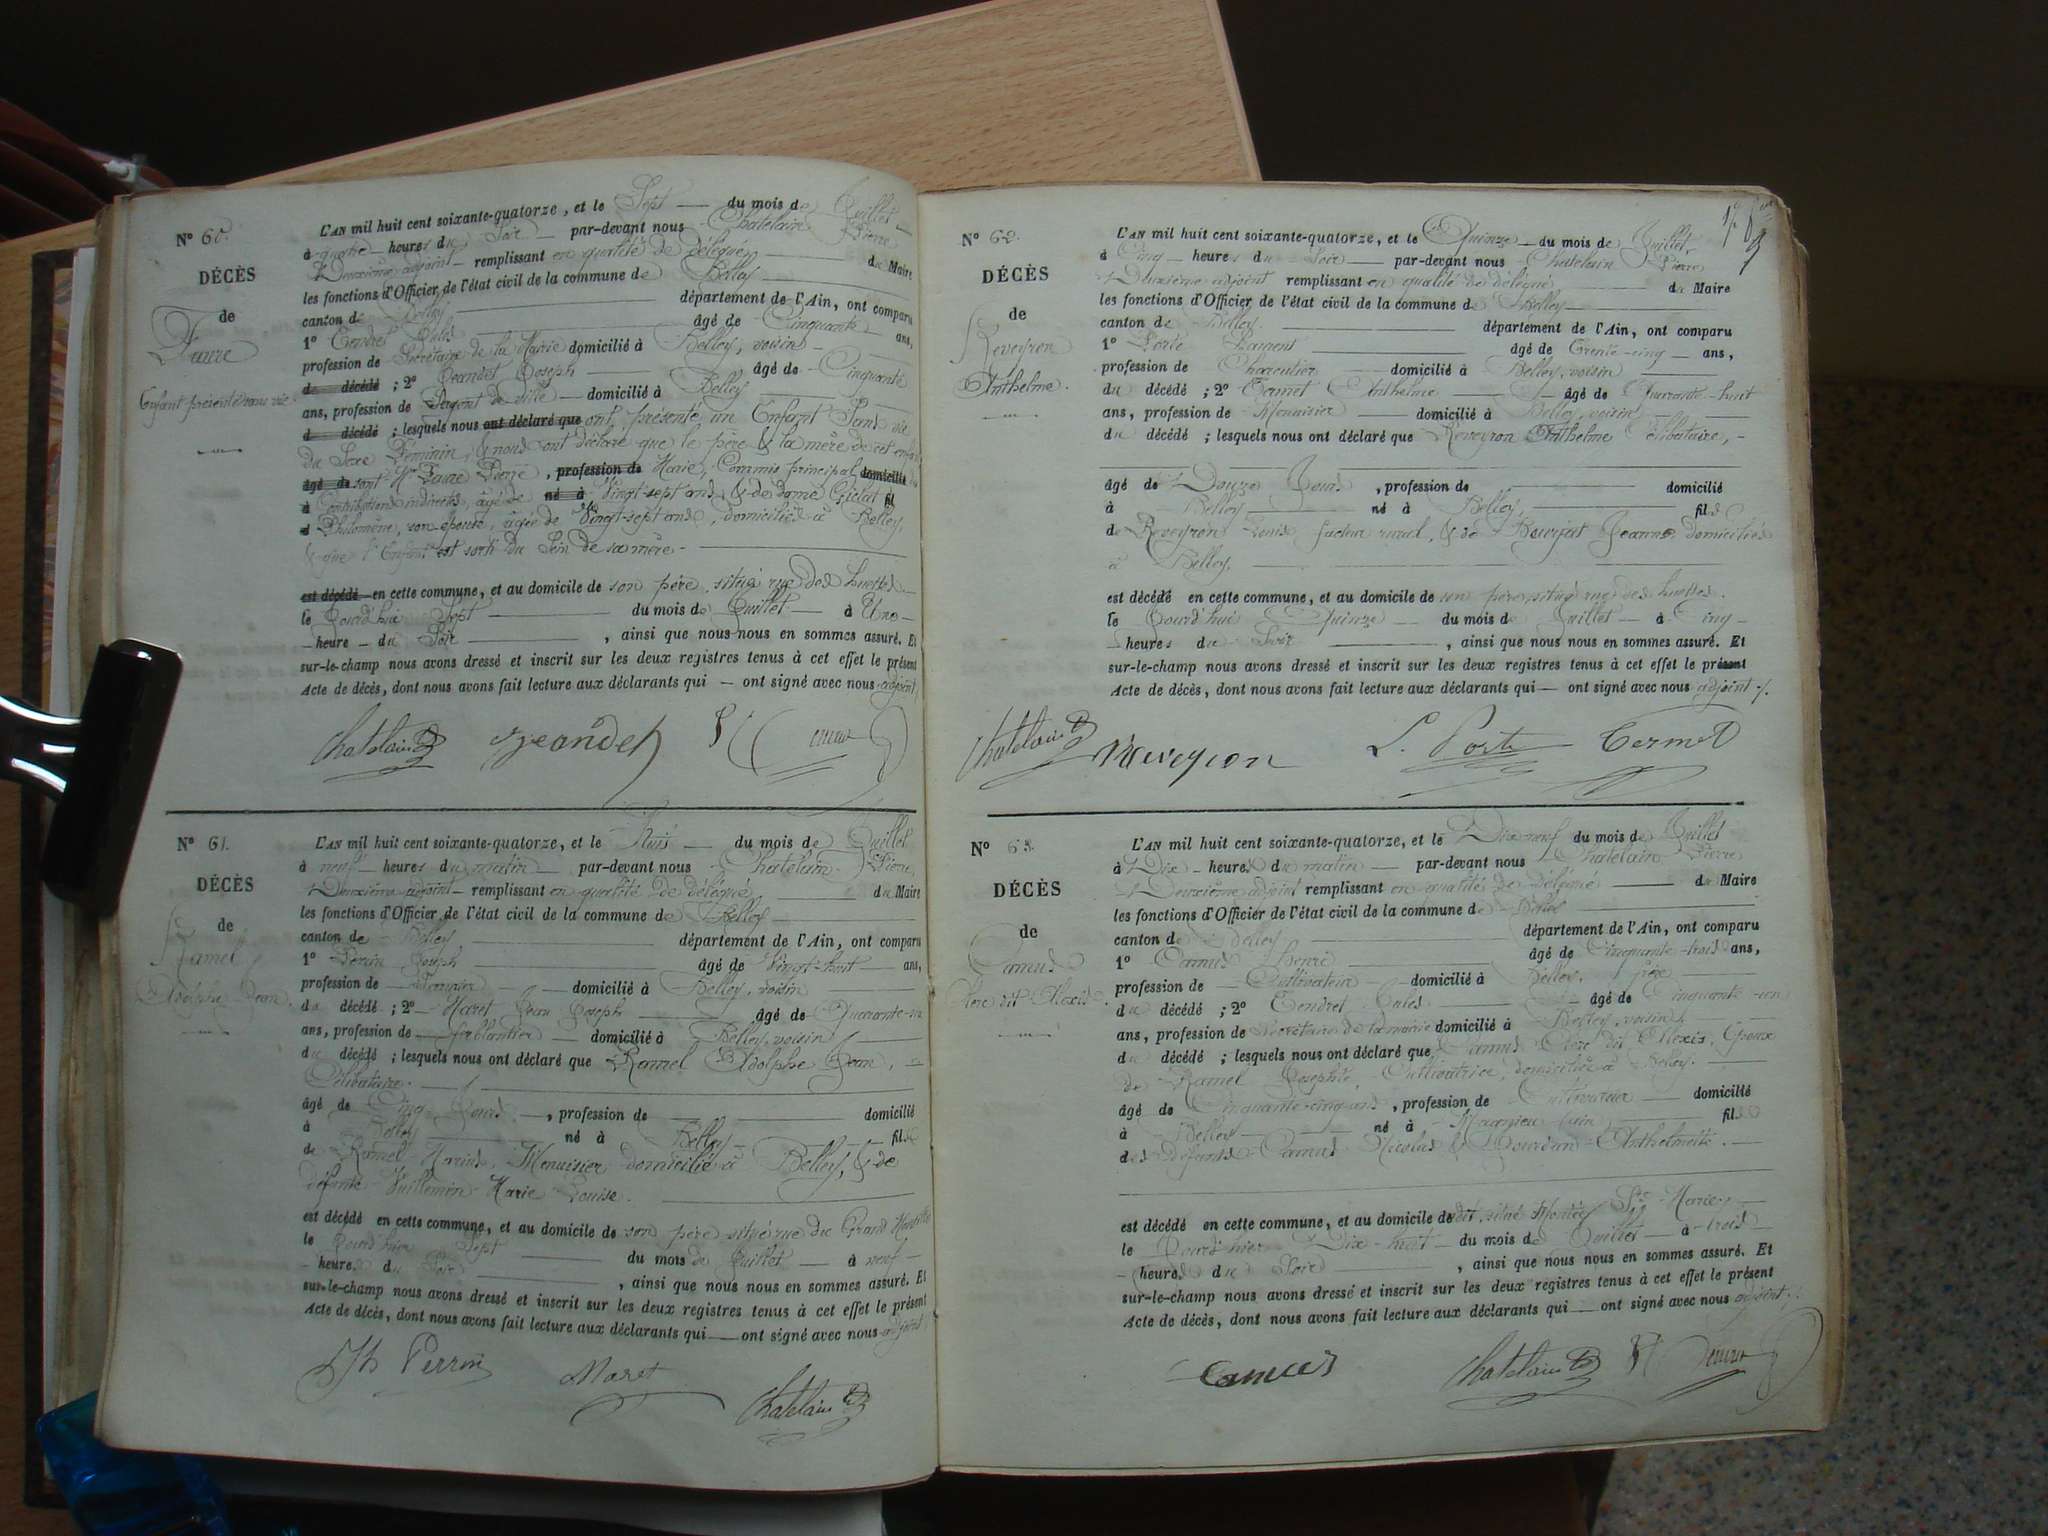 N° 60.
DÉCÈS
de
Faure
Enfant présenté sans vie
L'AN mil huit cent soixante-quatorze, et le Sept du mois de Juillet
à quatre heures du Soir par-devant nous Chatelain Pierre
Deuxième adjoint remplissant en qualité de délégué du Maire
les fonctions d'Officier de l'état civil de la commune de Belley
canton de Belley département de l'Ain, ont comparu
1° Tendret Jules âgé de Cinquante ans,
profession de Secrétaire de la Mairie domicilié à Belley, voisin
de décédé ; 2° Jeandet Joseph âgé de Cinquante
ans, profession de Sergent de ville domicilié à Belley
d décédé ; lesquels nous ont déclaré que ont présenté un Enfant Sans vie
du Sexe Féminin, & nous ont déclaré que le père & la mère de cet enfant
âgé de sont Mr Faure Pierre, profession de Marie, Commis principal domicilié
à Contributions indirectes, âgé de né à Vingt-sept ans, & de dame fil
d Philomène, son épouse, âgée de Vingt-sept ans, domiciliés à Belley,
& que l'Enfant est sorti du Sein de sa mère
est décédé en cette commune, et au domicile de son père, situé rue des
le Jourd'hui Sept du mois de Juillet à Une
heure du Soir, ainsi que nous nous en sommes assuré. Et
sur-le-champ nous avons dressé et inscrit sur les deux registres tenus à cet effet le présent
Acte de décès, dont nous avons fait lecture aux déclarants qui — ont signé avec nous adjoint
Chatelain Jeandet
N° 61.
DÉCÈS
de
Ramel
Adolphe Jean.
L'AN mil huit cent soixante-quatorze, et le Huit du mois de Juillet
à neuf heures du matin par-devant nous Chatelain Pierre,
Deuxième adjoint remplissant en qualité de délégué du Maire
les fonctions d'Officier de l'état civil de la commune de Belley
canton de Belley département de l'Ain, ont comparu
1° Perrin Joseph âgé de Vingt-huit ans,
profession de domicilié à Belley, voisin
du décédé ; 2° Maret Jean Joseph âgé de Quarante-
ans, profession de ferblantier domicilié à Belley, voisin
du décédé ; lesquels nous ont déclaré que Ramel Adolphe Jean,
Célibataire.
âgé de Cinq Jours, profession de domicilié
à Belley né à Belley fils
de Ramel Marius, Menuisier domicilié à Belley, & de
défunte Vuillemin Marie Louise.
est décédé en cette commune, et au domicile de son père situé rue du Grand
le Jourd'hier Sept du mois de Juillet à neuf
heures du Soir, ainsi que nous nous en sommes assuré. Et
sur-le-champ nous avons dressé et inscrit sur les deux registres tenus à cet effet le présent
Acte de décès, dont nous avons fait lecture aux déclarants qui — ont signé avec nous adjoint
Jh Perrin Maret Chatelain
N° 62.
DÉCÈS
de
Reveyron
Anthelme.
L'AN mil huit cent soixante-quatorze, et le Quinze du mois de Juillet
à Cinq heures du Soir par-devant nous Chatelain Pierre
Deuxième adjoint remplissant en qualité de délégué du Maire
les fonctions d'Officier de l'état civil de la commune de Belley
canton de Belley. département de l'Ain, ont comparu
1° Porte Laurent âgé de Trente-cinq ans,
profession de Charcutier domicilié à Belley, voisin
du décédé ; 2° Termet Anthelme âgé de Quarante-huit
ans, profession de Menuisier domicilié à Belley, voisin
du décédé ; lesquels nous ont déclaré que Reveyron Anthelme Célibataire,
âgé de Douze Jours, profession de domicilié
à Belley né à Belley, fils
de Reveyron Louis, facteur rural, & de Jeanne domiciliés
à Belley.
est décédé en cette commune, et au domicile de son père, situé rue des
le Jourd'hui Quinze du mois de Juillet à Cinq
heures du Soir, ainsi que nous nous en sommes assuré. Et
sur-le-champ nous avons dressé et inscrit sur les deux registres tenus à cet effet le présent
Acte de décès, dont nous avons fait lecture aux déclarants qui — ont signé avec nous adjoint
Chatelain Reveyron L. Porte Termet
N° 63.
DÉCÈS
de
Camus
Claude dit Alexis
L'AN mil huit cent soixante-quatorze, et le Dix neuf du mois de Juillet
à Dix heures du matin par-devant nous Chatelain Pierre
Deuxième adjoint remplissant en qualité de délégué du Maire
les fonctions d'Officier de l'état civil de la commune de Belley
canton de Belley département de l'Ain, ont comparu
1° Camus Henri âgé de Cinquante-trois ans,
profession de Cultivateur domicilié à Belley, frère
du décédé ; 2° Tendret Jules âgé de Cinquante-un
ans, profession de Secrétaire de la mairie domicilié à Belley, voisin
du décédé ; lesquels nous ont déclaré que Camus dit Alexis, Époux
de Ramel Josephte, Cultivatrice, domiciliée à Belley.
âgé de Cinquante-cinq ans, profession de Cultivateur domicilié
à Belley né à (Ain) fils
des défunts Camus Nicolas & Anthelmette.
est décédé en cette commune, et au domicile de situé Montée Ste Marie
le Jourd'hier Dix-huit du mois de Juillet à trois
heures du Soir, ainsi que nous nous en sommes assuré. Et
sur-le-champ nous avons dressé et inscrit sur les deux registres tenus à cet effet le présent
Acte de décès, dont nous avons fait lecture aux déclarants qui — ont signé avec nous adjoint
Camus Chatelain